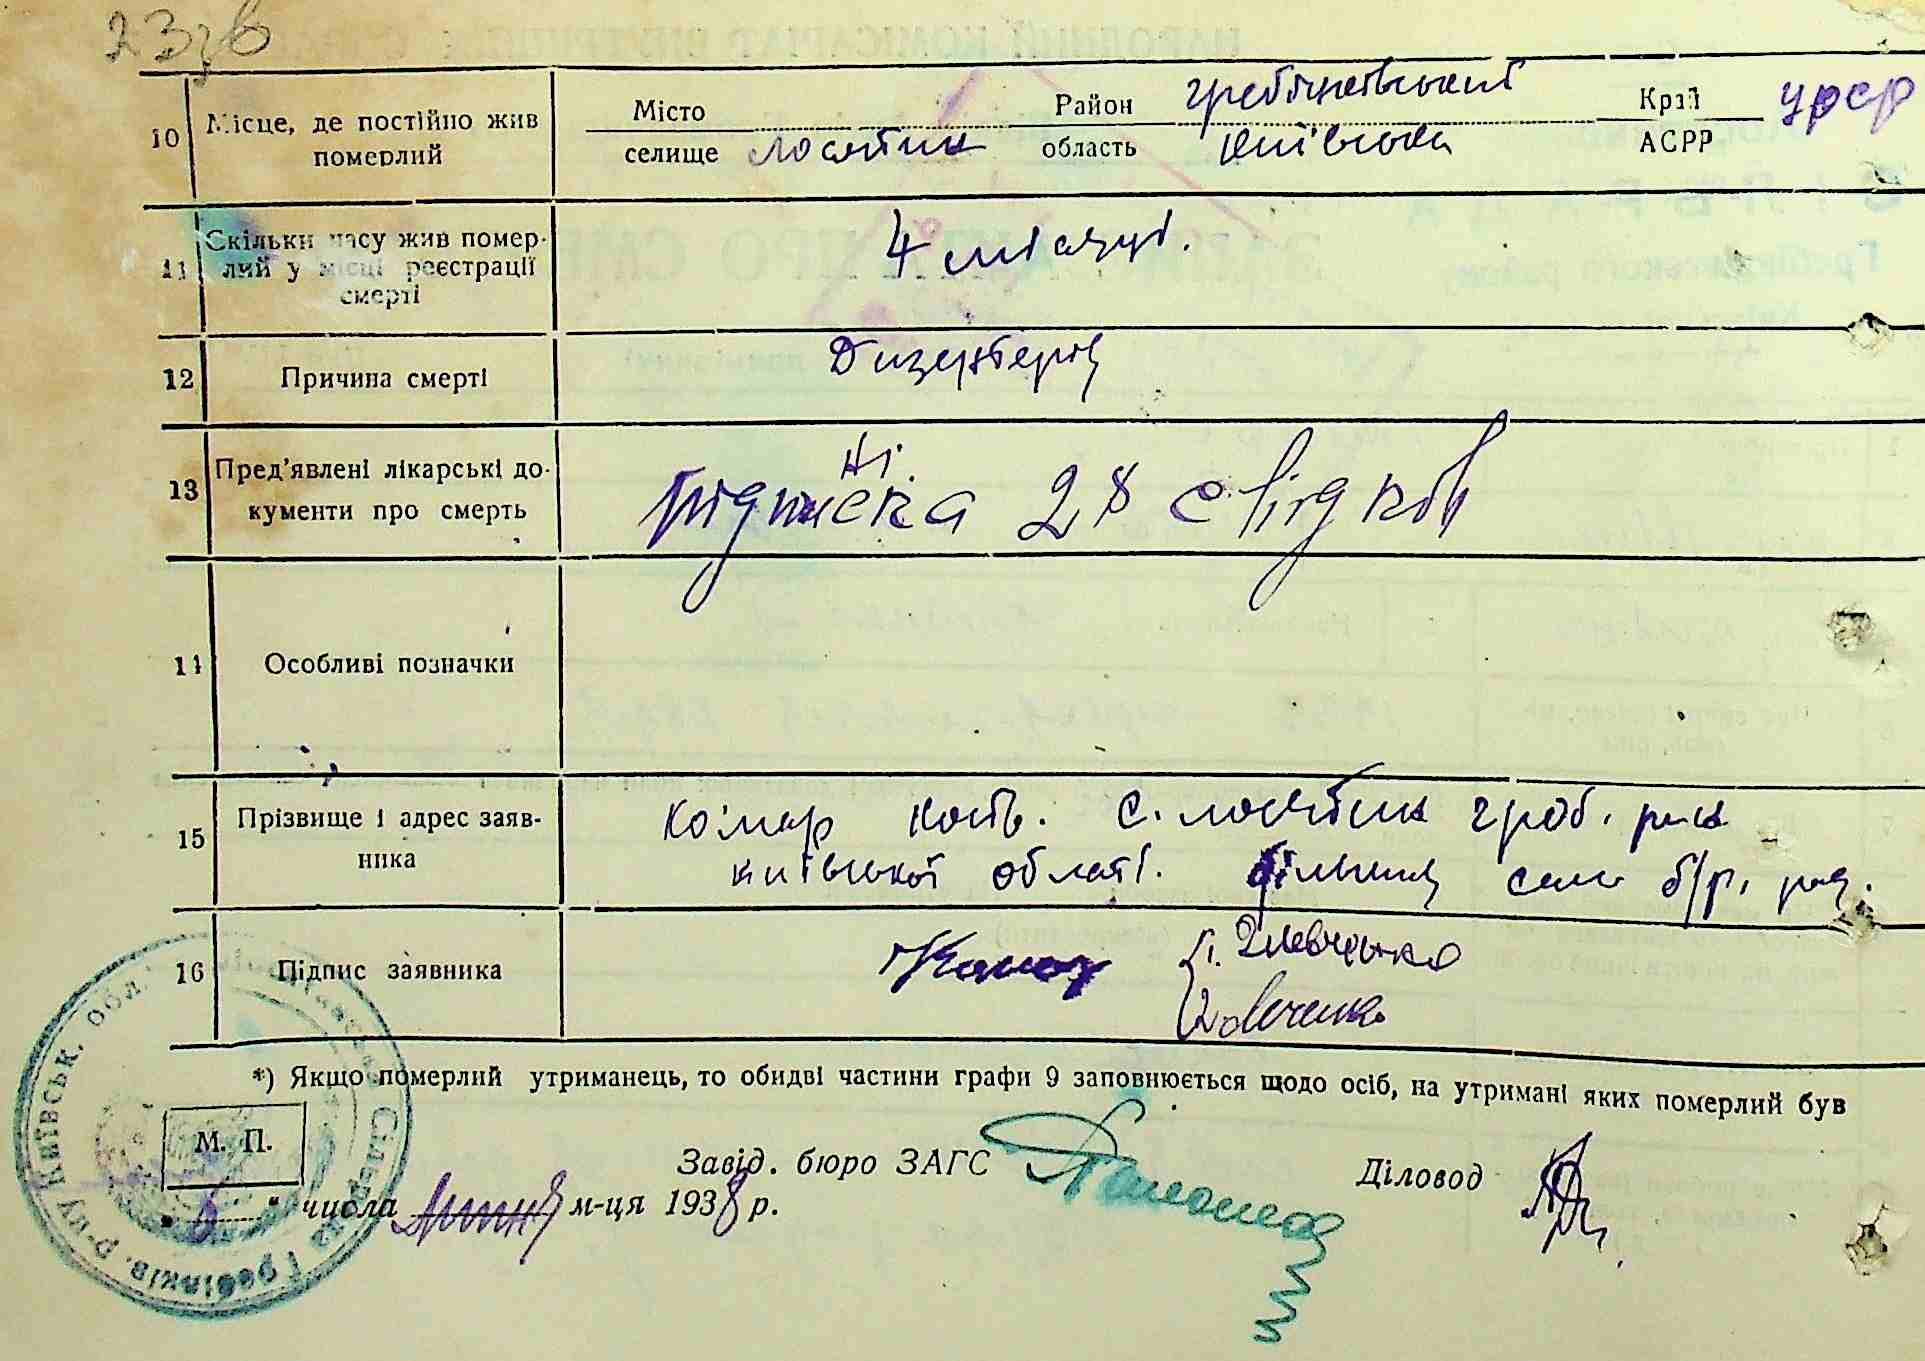 23зв
10 Місце, де постійно жив померлий
Місто селище лосятин Район область гребінківський київська Край АСРР УРСР
11 Скільки часу жив помер-
лий у місці реєстрації
смерті
4 місяці.
12 Причина смерті Дизентерія
13 Пред'явлені лікарські до-
кументи про смерть
Ні.
підписка 2х свідків
14 Особливі позначки
15 Прізвище і адрес заяв-
ника
комар кость. с. лосятин греб. р-на
київської області. сем б/р.
16 Підпис заявника
Шевченко
*) Якщо померлий утриманець, то обидві частини графи 9 заповнюється щодо осіб, на утримані яких померлий був
М. П.
Завід. бюро ЗАГС Діловод
" числа м-ця 1938 р.
Гребінків. р-ну Київськ. обл.